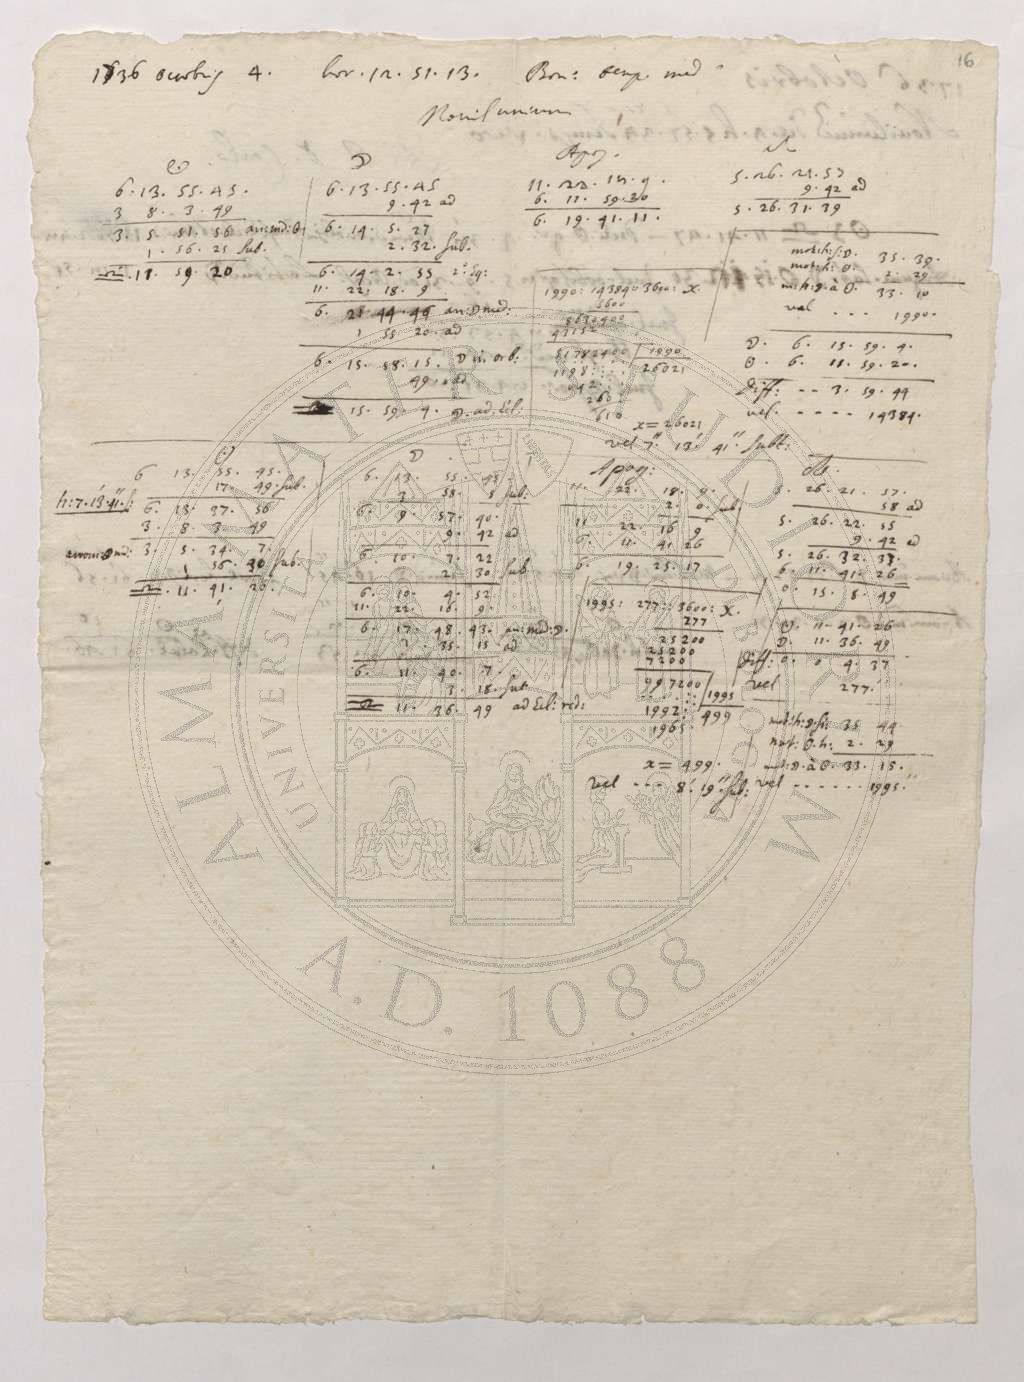 16
1736 Octobris 4. hor. 12. 51. 13. Bon: temp. med
Novilunium
☉
6. 13. 55. 45.
3 8. 3. 49
3. 5. 51. 56 an:md:☉
1. 56. 25 sub.
♎. 11. 59. 20
☽
6. 13. 55. 45
9. 42 ad
6. 14. 5. 27
2. 32. sub.
6. 14. 2. 55 2ª Eq:
11. 22. 18. 9
6. 21 44. 46 an:☽ med:
1 55 20. ad
6. 15. 58. 15. ☽ in orb:
49. ad
15. 59. 4. ☽. ad. Ecl:
Apog.
11. 22. 18. 9.
6. 11. 59. 20
6. 19. 41. 11.
1990: 14384: 3600: X.
3600
8630400
43152
51782400 | 1990
1198 : : : | 26021
042 : :
260 :
610
x = 26021
vel 7. 13' 41'' subt:
☊
5. 26. 21. 57
9. 42 ad
5. 26. 31. 39
mot:h:☽. 35. 39.
mot:h: ☉. 2. 29
m:h:☽ à ☉. 33. 10
vel - - - 1990.
☽. 6. 15. 59. 4.
☉. 6. 11. 59. 20.
Diff: -- 3. 59. 44
vel. - - - - 14384.
☉
6 13. 55. 45.
h: 7. 13'. 41'': 17. 49. sub.
6. 13. 37. 56
3. 8. 3. 49
anom:☉ md: 3. 5. 34. 7.
1 56. 30 sub.
♎. 11. 41. 26.
☽.
6. 13. 55. 45.
3 58. 5 sub:
6. 9. 57. 40.
9. 42 ad
6. 10. 7. 22
2. 30 sub
6. 10. 4. 52
11. 22. 16. 9.
6. 17. 48. 43. an:med:☽.
1. 35. 15 ad
6. 11. 40. 7.
3. 18. sub
♎ 11. 36. 49 ad Ecl: red:
Apog:
11. 22. 18. 9.
2. 0. sub
11 22. 16 9
6. 11. 41 26
6. 19. 25. 17
1995: 277:: 3600: X.
277
25200
25200
7200
997200 | 1995
1992 : | 499
1965.
x = 499.
vel --- 8'. 19'' sub:
☊.
5. 26. 21. 57.
58 ad
5. 26. 22. 55
9. 42 ad
5. 26. 32. 37.
6. 11. 41. 26
0. 15. 8. 49
☉. 11. 41. 26
☽. 11. 36. 49
Diff: 0. 0 4. 37
vel 277.
mot:h:☽. 35 44
mot: ☉. h: 2. 29
m:☽. à ☉. 33. 15.
vel - - - - - - 1995.
ALMA MATER STUDIORUM
UNIVERSITÀ DI BOLOGNA
A.D. 1088